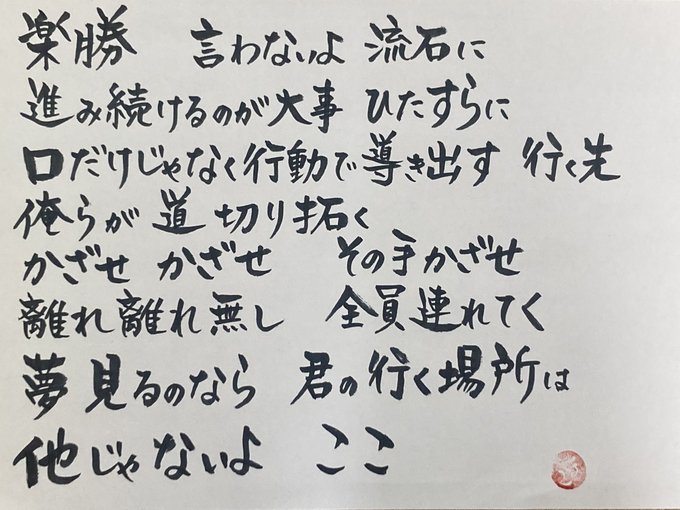 楽勝 言わないよ 流石に
進み続けるのが大事 ひたすらに
口だけじゃなく行動で導き出す 行く先
俺らが 道 切り拓く
かざせ かざせ その手かざせ
離れ離れ無し 全員連れてく
夢見るのなら 君の行く場所は
他じゃないよ ここ